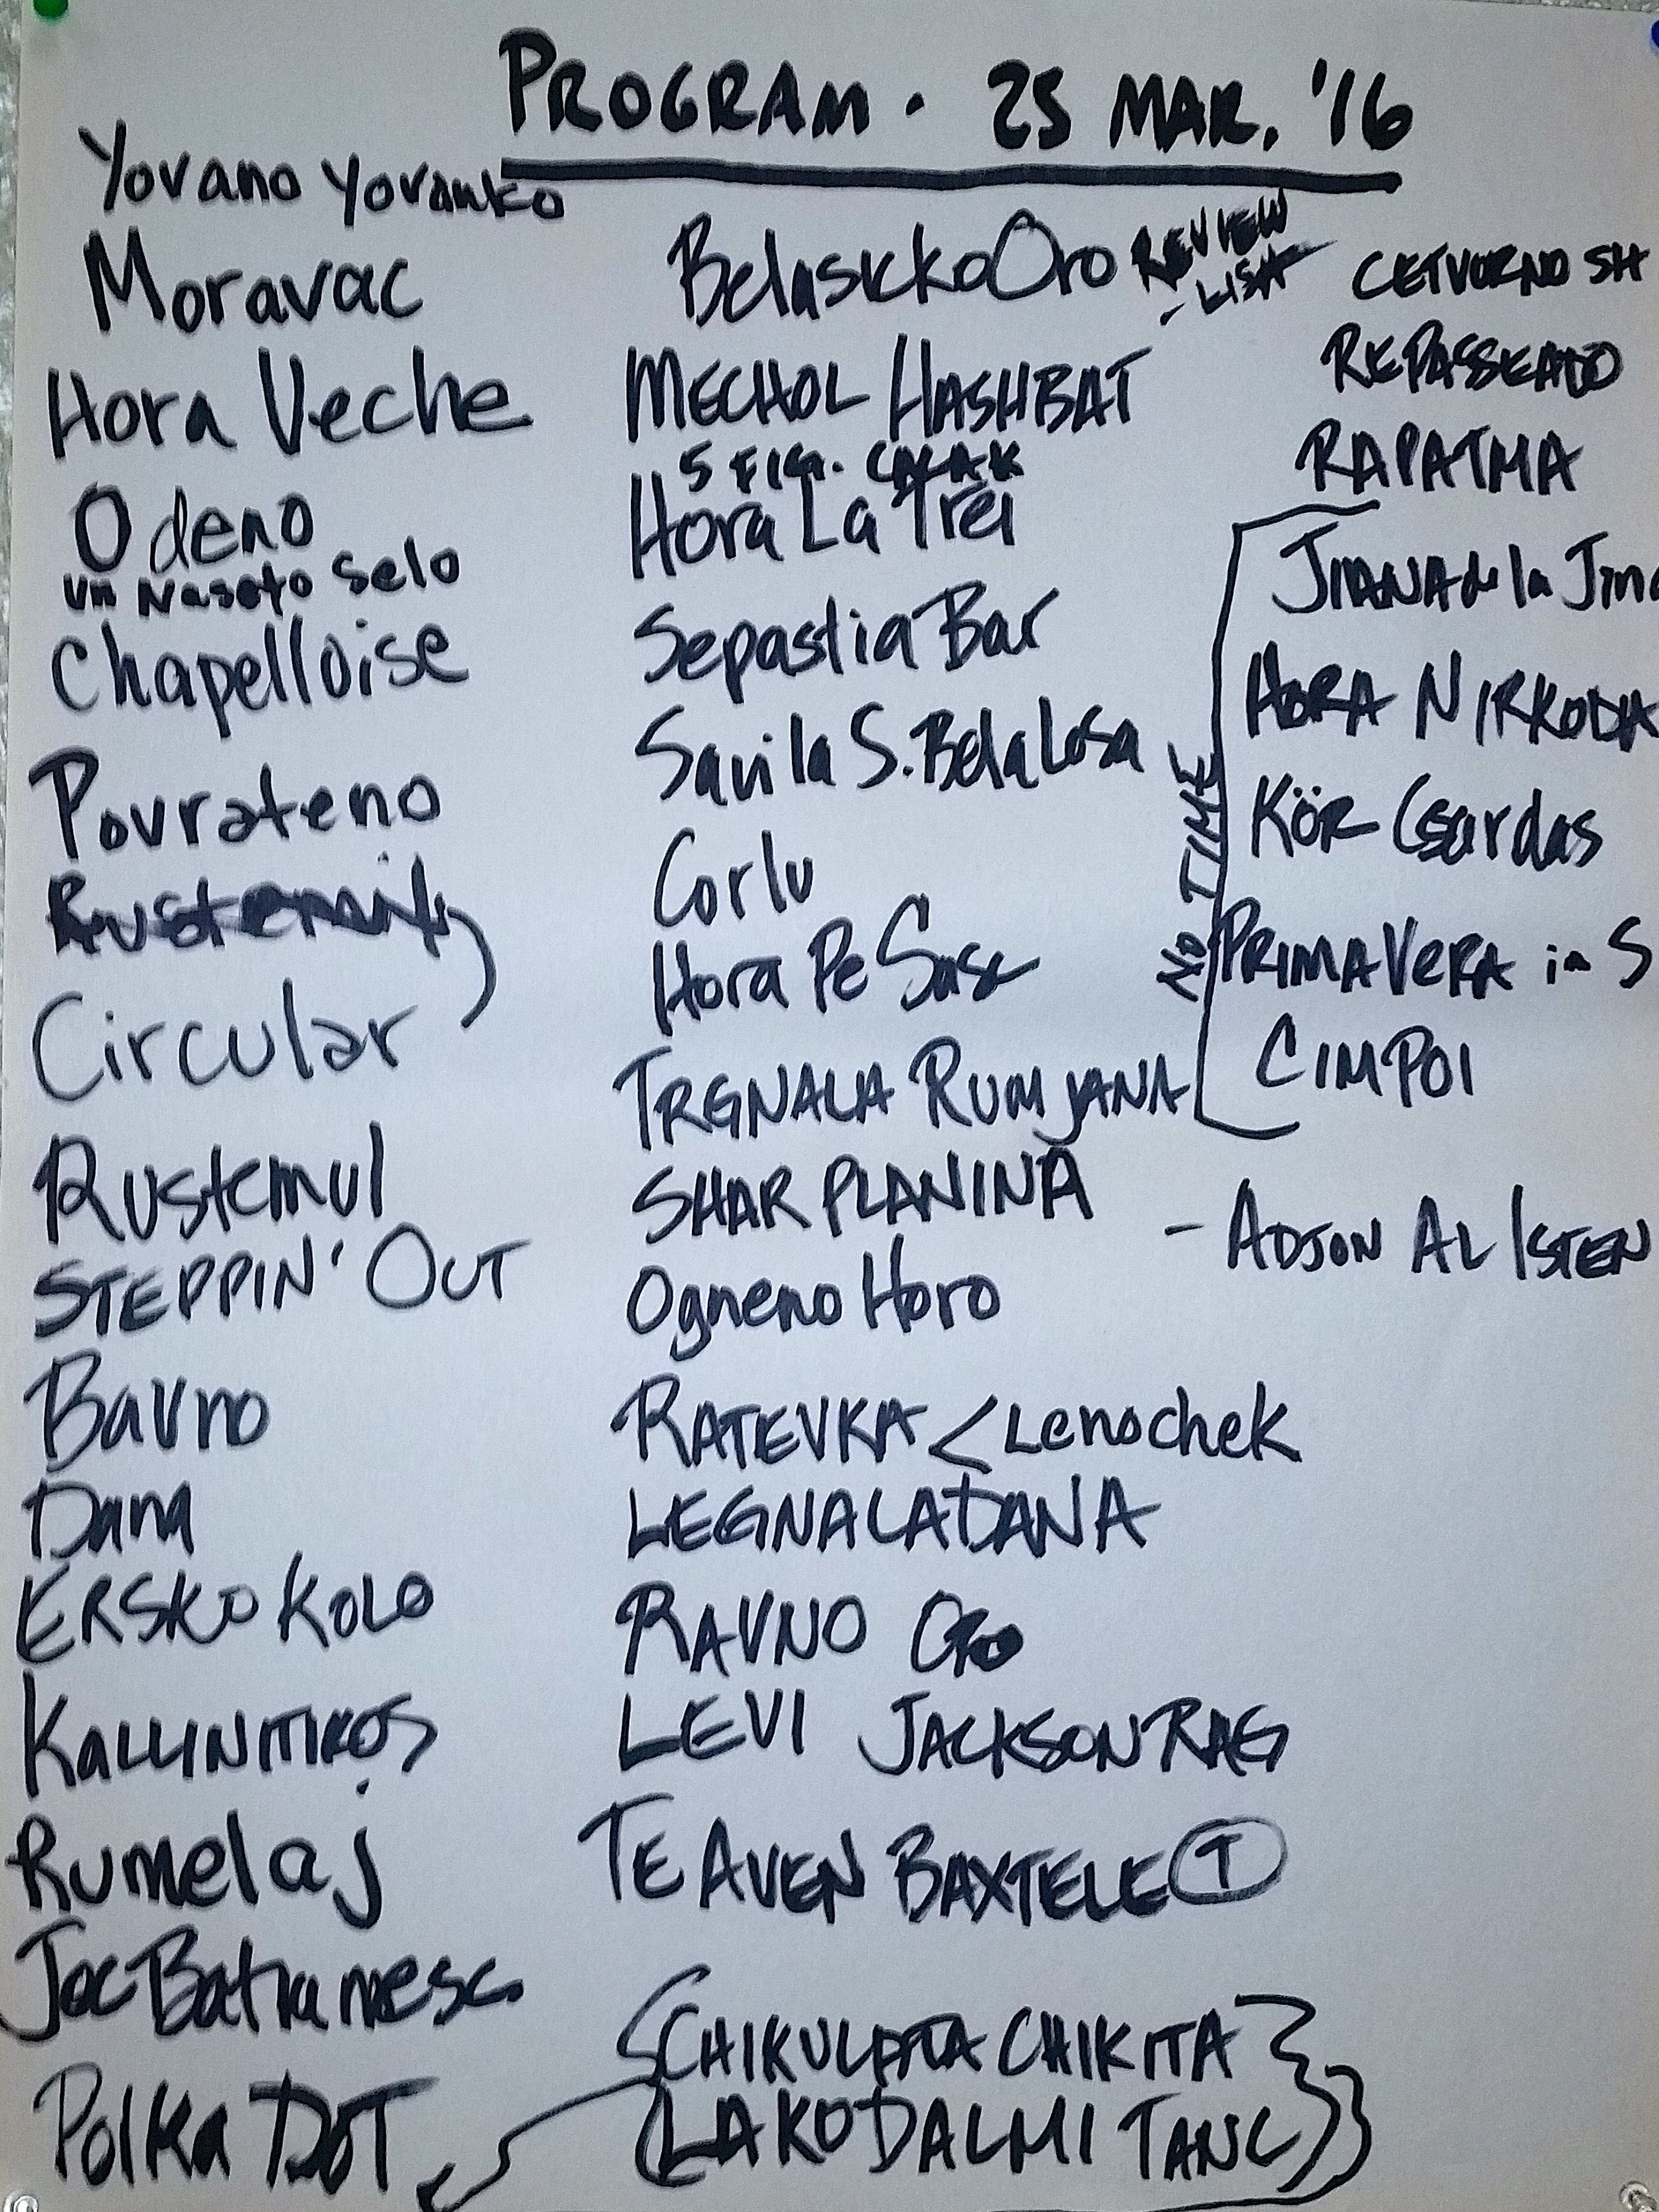 PROGRAM · 25 MAR. '16
Yovano Yovanko
Moravac
Hora Veche
Odeno
vn Naseto Selo
Chapelloise
Povrateno
Circular
Rustemul
STEPPIN' OUT
Bavno
Dana
ERSKO KOLO
KALLINITIKOS
Rumelaj
Joc Batranesc
Polka DOT
Belasicko Oro REVIEW
- LISA
MECHOL HASHBAT
5 FIG.
Hora La Trei
Sepastia Bar
Savila S. Bela Losa
Corlu
Hora Pe Sase
TRGNALA RUMJANA
SHAR PLANINA
Ogneno Horo
RATEVKA < Lenochek
LEGNALA DANA
RAVNO Oro
LEVI JACKSON RAG
TE AVEN BAXTELE T
CHIKULATA CHIKITA
LAKODALMI TANC
CETVORNO SH
REPASSEADO
RAPATMA
NO TIME
JIANA de la Jina
HORA NIRKODA
KÖR Csardas
PRIMAVERA in S
CIMPOI
- ADJON AZ ISTEN